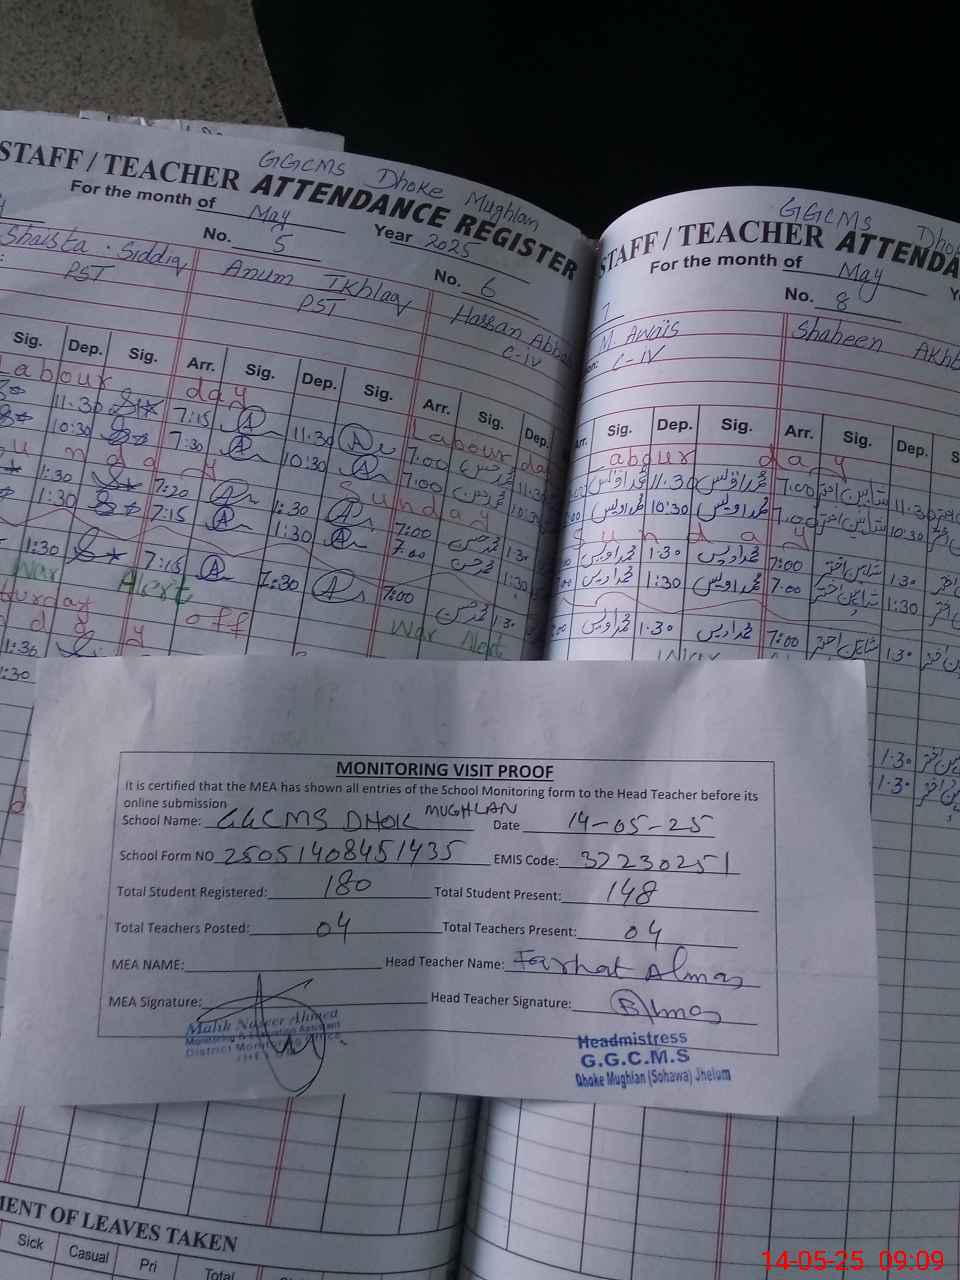 GGCMS Dhoke Mughlan
STAFF / TEACHER ATTENDANCE REGISTER
For the month of May Year 2025
No. 5
No. 6
Shaista Siddiq
PST
Anum Ikhlaq
PST
Hassan
C-IV
Sig. Dep. Sig. Arr. Sig. Dep. Sig. Arr. Sig. Dep.
Labour day
Labour day
11:30 7:15 11:30 7:00 محمد حسن 11:30
10:30 7:30 10:30 7:00 محمد حسن 10:30
Sunday
1:30 7:20 1:30 7:00 محمد حسن 1:30
1:30 7:15 1:30 7:00 محمد حسن 1:30
1:30 7:15 1:30 7:00 محمد حسن 1:30
War Alert
War Alert
off
1:30
1:30
GGCMS Dhok
STAFF / TEACHER ATTENDA
For the month of May
7
No. 8
M. Awais
C-IV
Shaheen Akh
Sig. Dep. Sig. Arr. Sig. Dep.
Labour day
محمد اویس 11:30 محمد اویس 7:00 شاہین اختر 11:30
محمد اویس 10:30 محمد اویس 7:00 شاہین اختر 10:30
Sunday
محمد اویس 1:30 محمد اویس 7:00 شاہین اختر 1:30
محمد اویس 1:30 محمد اویس 7:00 شاہین اختر 1:30
محمد اویس 1:30 محمد اویس 7:00 شاہین اختر 1:30
War
1:30
1:30
MONITORING VISIT PROOF
It is certified that the MEA has shown all entries of the School Monitoring form to the Head Teacher before its
online submission
School Name: GGCMS DHOK MUGHLAN Date 14-05-25
School Form NO 25051408451435 EMIS Code: 37230251
Total Student Registered: 180 Total Student Present: 148
Total Teachers Posted: 04 Total Teachers Present: 04
MEA NAME: Head Teacher Name: Farhat Almas
MEA Signature: Head Teacher Signature:
Malik Naseer Ahmed
Monitoring & Evaluation Assistant
District Monitoring Office
Headmistress
G.G.C.M.S
Dhoke Mughlan (Sohawa) Jhelum
MENT OF LEAVES TAKEN
Sick Casual Pri Total
14-05-25 09:09